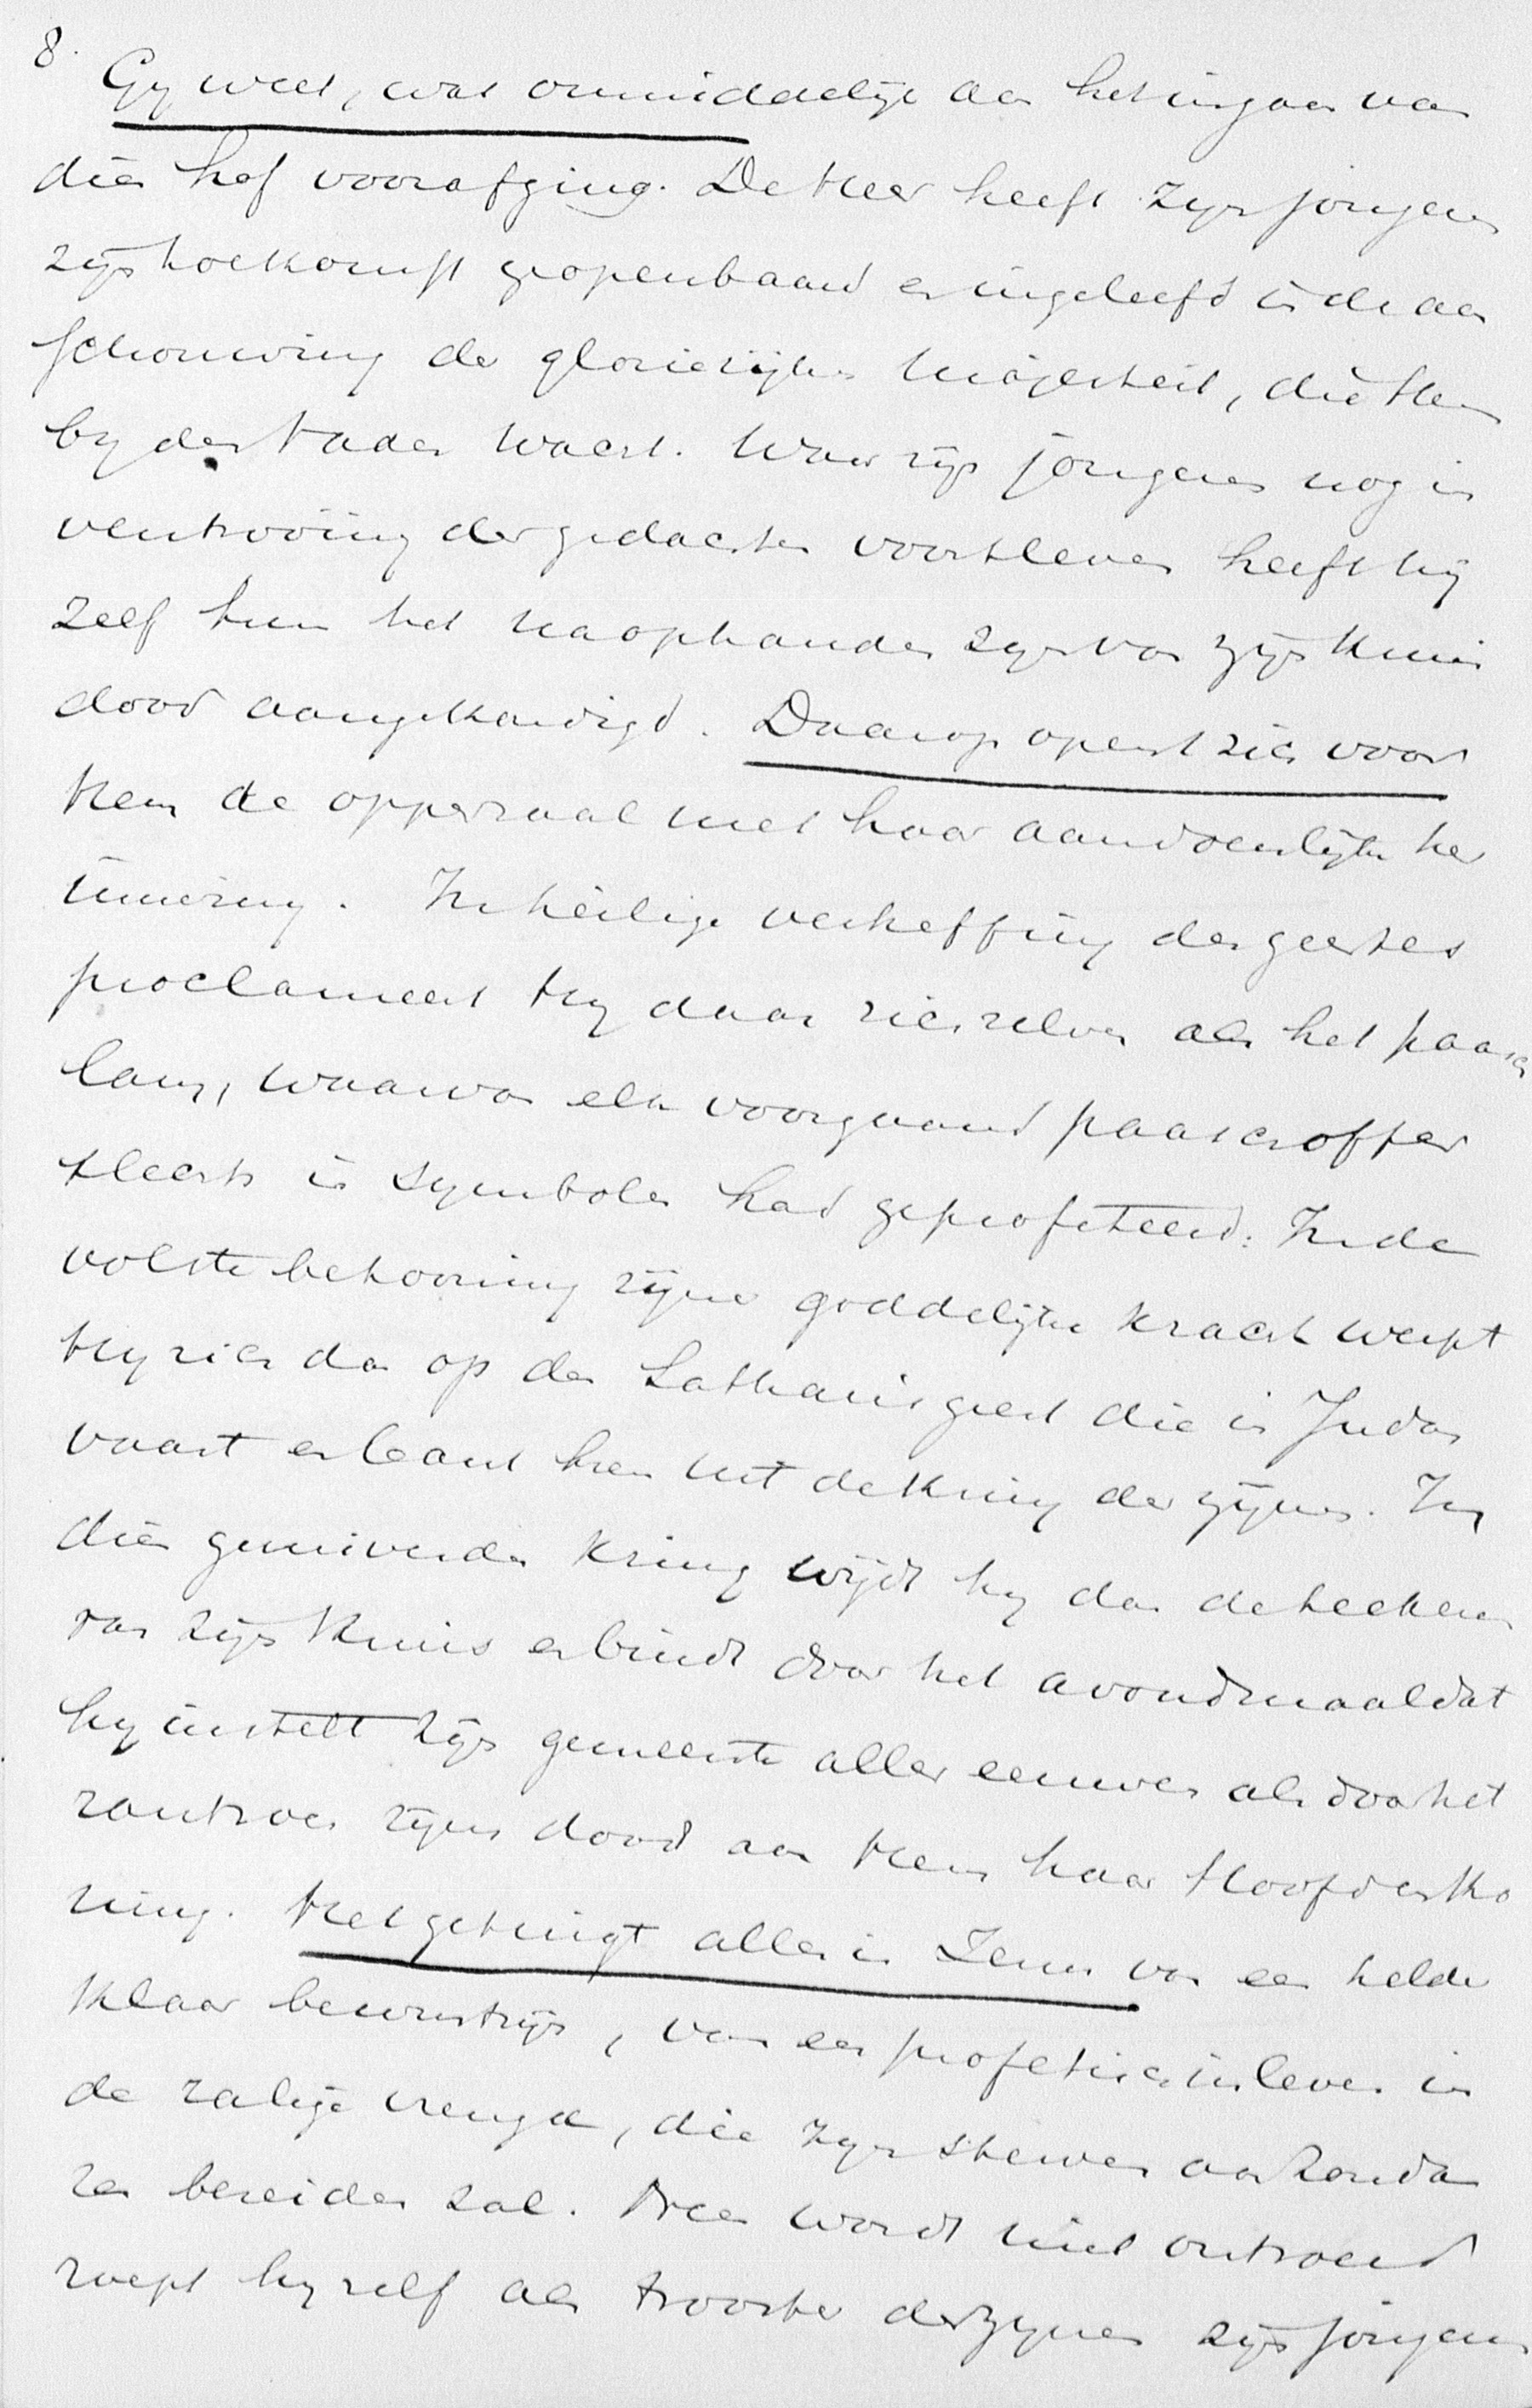 8.
Gy weet, wat onmiddelijk aan het ingaan van
dien hof voorafging. De Heer heeft zyn jongeren
zijn toekomst geopenbaard en ingeleefd in de aan
schouwing der glorierijke Majesteit, die Hem
by den Vader wacht. Waar zijn jongeren nog in
verstrooiing der gedachten voortleven heeft hij
zelf hun het naophanden zyn van zijn Kruis
dood aangekondigd. Daarop opent zich voor
Hem de opperzaal met haar aandoenlijke her
innering. In heilige verheffing des geestes
proclameert Hy daar zichzelven als het paasch
lam, waarvan elk voorgaand paaschoffer
slechts in symbolen had geprofeteerd. In de
volste betooning zijner goddelijke kracht werpt
Hy zich dan op den Sathansgeest die in Judas
vaart en bant hem uit de kring der zijnen. In
dien gezuiverden kring wijdt hy dan de teekenen
van zijn Kruis en bindt door het avondmaal dat
hy instelt zijn gemeente aller eeuwen als door het
zoutvan zijnen dood aan Hem haar Hoofd en Ko
ning. Het getuigt alles in Jezus van een helder
klaar bewustzijn, van een profetisch inleven in
de zalige vreugde, die zyn sterven aan zonda
ren bereiden zal. Neen wordt niet ontroerd
roept hy zelf als trooster der zynen zijn jongeren